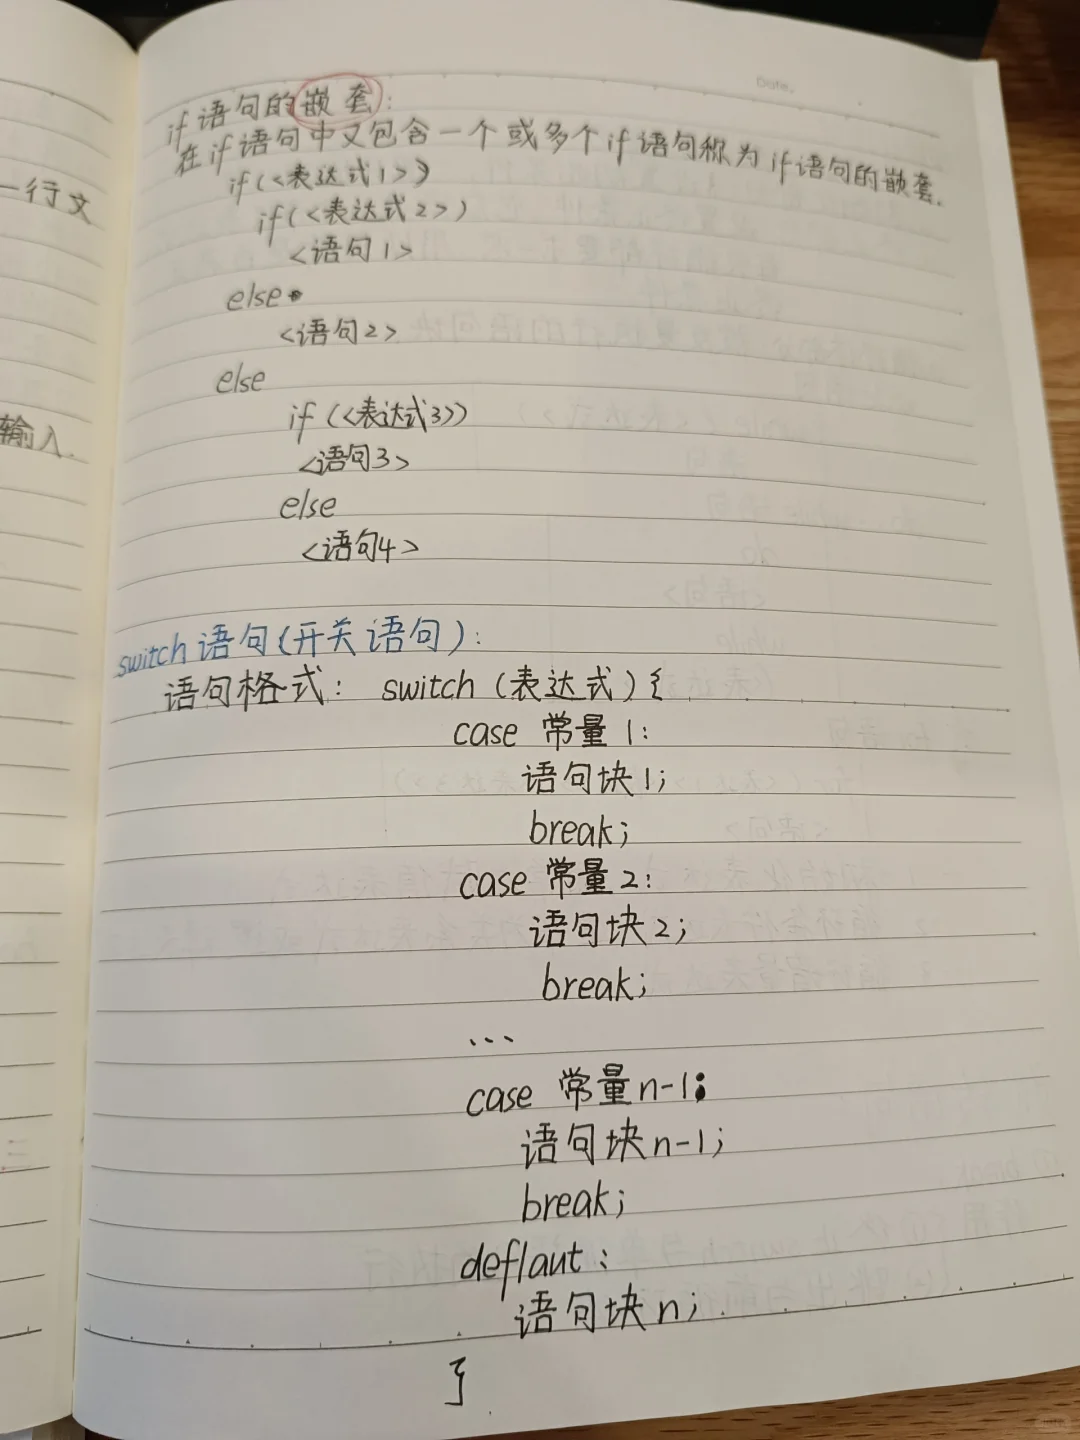 if语句的嵌套:
在if语句中又包含一个或多个if语句称为if语句的嵌套.
if(<表达式1>)
if(<表达式2>)
<语句1>
else
<语句2>
else
if(<表达式3>)
<语句3>
else
<语句4>
switch语句(开关语句):
语句格式: switch(表达式){
case 常量1:
语句块1;
break;
case 常量2:
语句块2;
break;
...
case 常量n-1:
语句块n-1;
break;
deflaut:
语句块n;
}
一行文
输入.
Date.